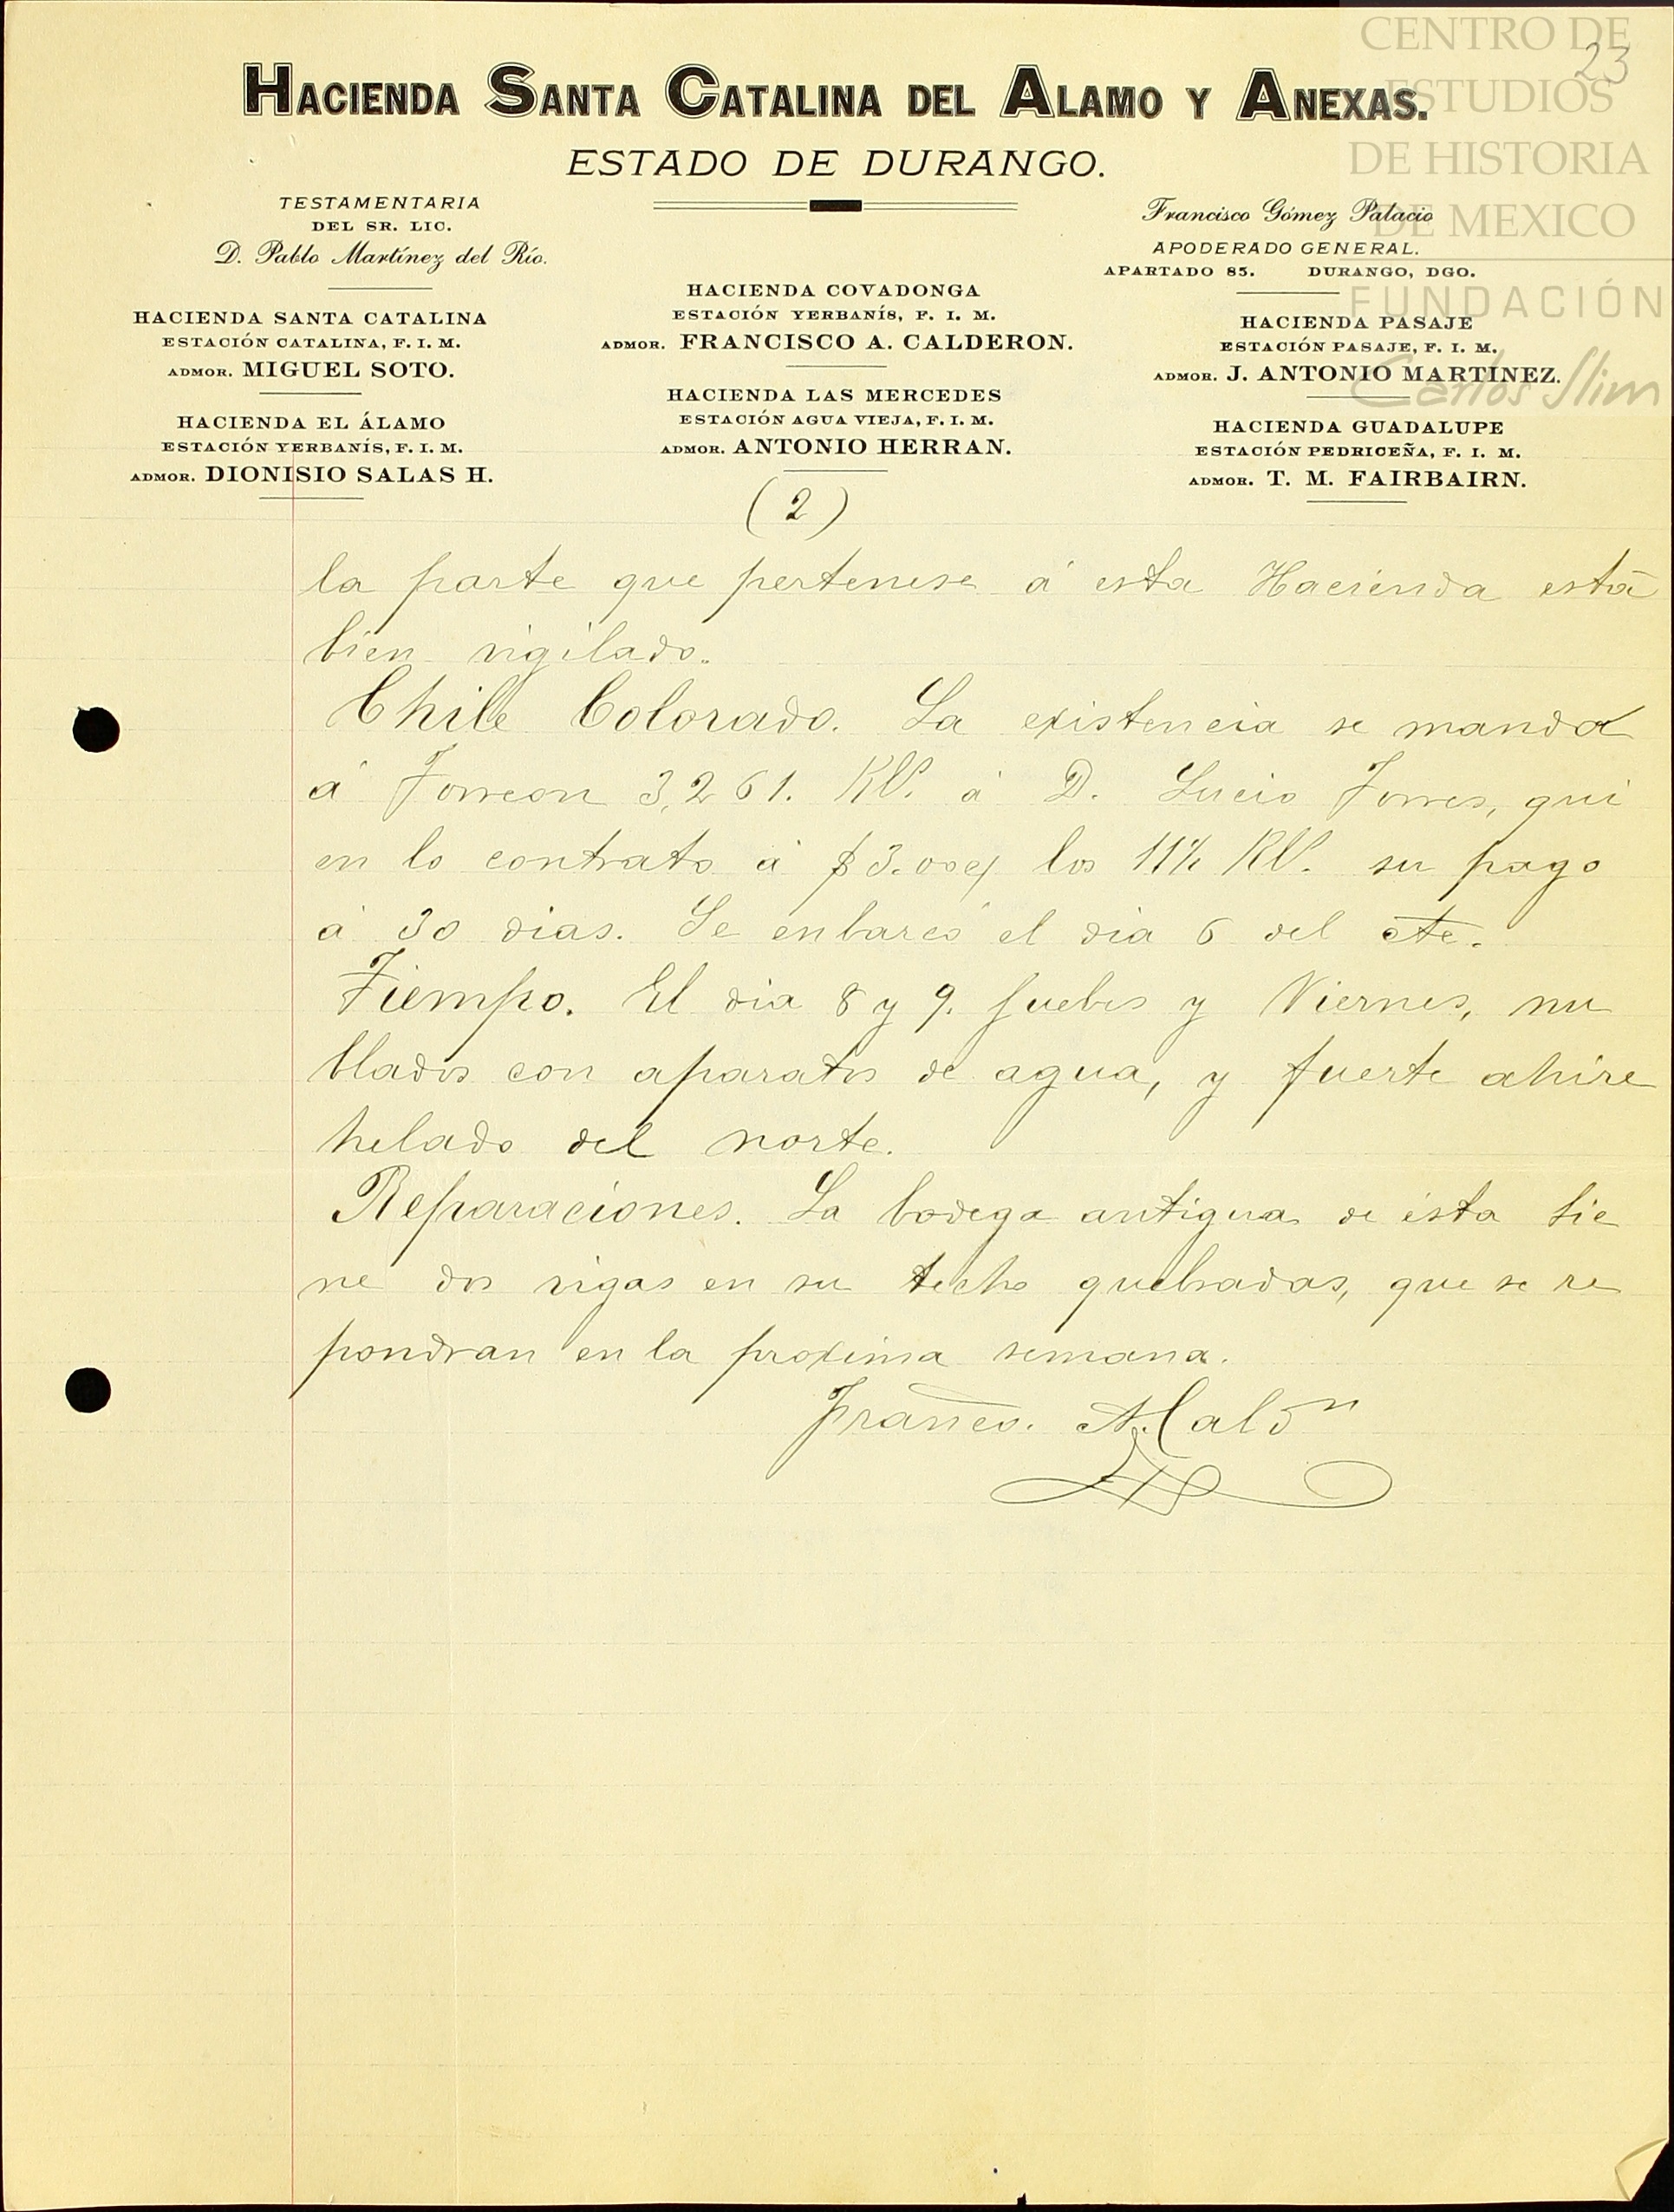 CENTRO DE
ESTUDIOS
DE HISTORIA
DE MEXICO
FUNDACIÓN
Carlos Slim
23
HACIENDA SANTA CATALINA DEL ALAMO Y ANEXAS.
ESTADO DE DURANGO.
TESTAMENTARIA
DEL SR. LIC.
D. Pablo Martínez del Río.
HACIENDA SANTA CATALINA
ESTACIÓN CATALINA, F. I. M.
ADMOR. MIGUEL SOTO.
HACIENDA EL ÁLAMO
ESTACIÓN YERBANÍS, F. I. M.
ADMOR. DIONISIO SALAS H.
HACIENDA COVADONGA
ESTACIÓN YERBANÍS, F. I. M.
ADMOR. FRANCISCO A. CALDERON.
HACIENDA LAS MERCEDES
ESTACIÓN AGUA VIEJA, F. I. M.
ADMOR. ANTONIO HERRAN.
Francisco Gómez Palacio
APODERADO GENERAL.
APARTADO 85. DURANGO, DGO.
HACIENDA PASAJE
ESTACIÓN PASAJE, F. I. M.
ADMOR. J. ANTONIO MARTÍNEZ.
HACIENDA GUADALUPE
ESTACIÓN PEDRICEÑA, F. I. M.
ADMOR. T. M. FAIRBAIRN.
(2)
la parte que pertenese á esta Hacienda está
bien vigilado.
Chile Colorado. La existencia se manda
á Torreon 3,261. Kl's. á D. Lucio Torres, qui
en lo contrato á $3.00 los 11½ Kl's. su pago
á 30 dias. Se enbarcó el dia 6 del cte.
Tiempo. El dia 8 y 9. Juebes y Viernes, nu
blados con aparatos de agua, y fuerte ahire
helado del norte.
Reparaciones. La bodega antigua de ésta tie
ne dos vigas en su techo quebradas, que se re
pondran en la proxima semana.
Franco. A. Caldn